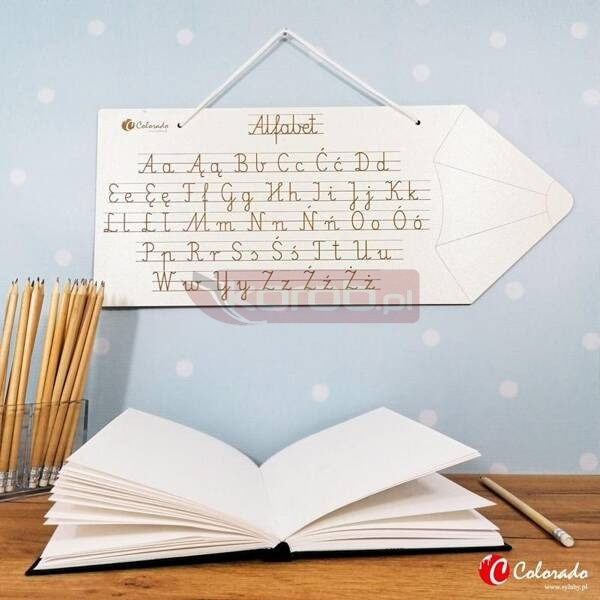 Colorado
Alfabet
Aa Ąą Bb Cc Ćć Dd
Ee Ęę Ff Gg Hh Ii Jj Kk
Ll Łł Mm Nn Ńń Oo Óó
Pp Rr Ss Śś Tt Uu
Ww Yy Zz Źź Żż
koroo.pl
Colorado
www.sylaby.pl